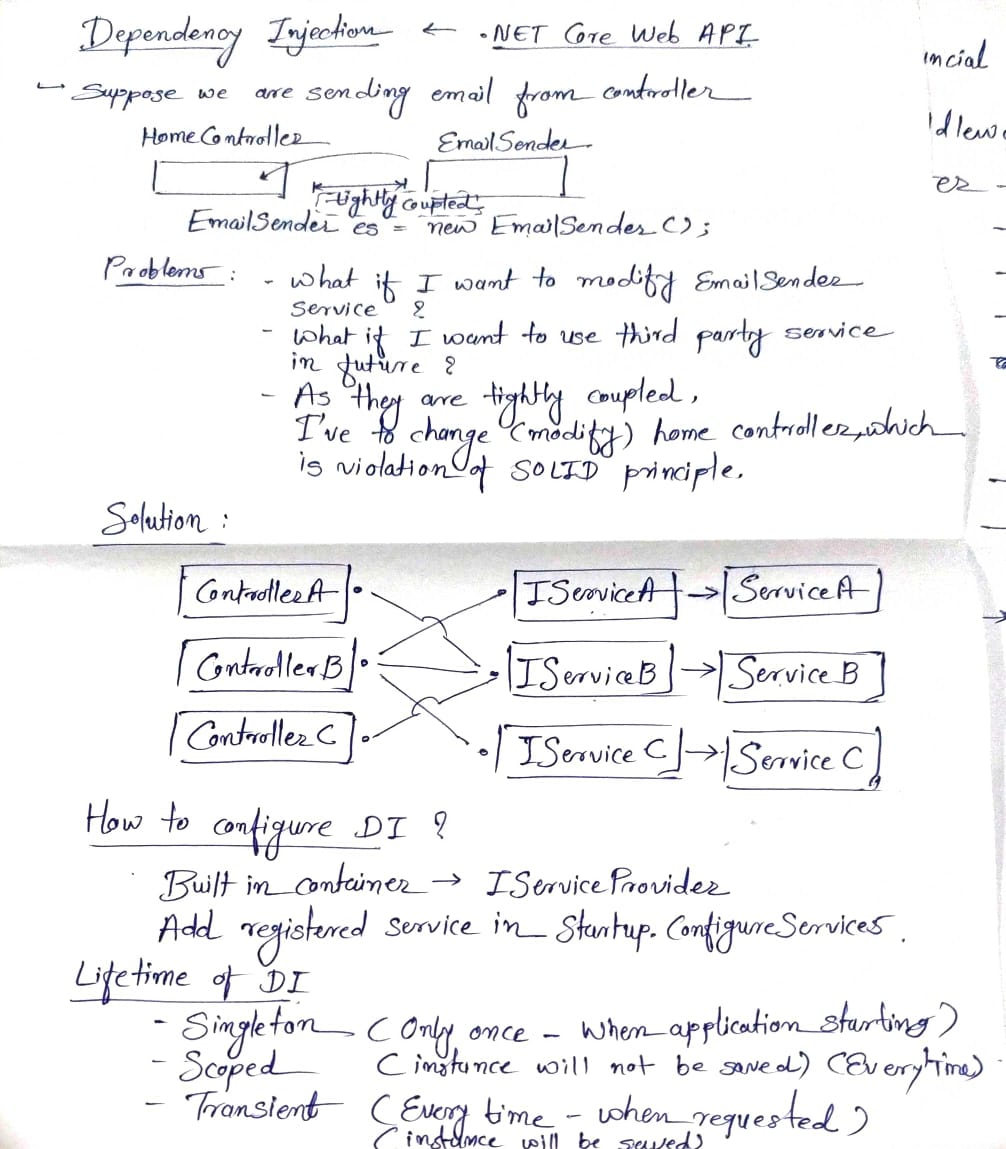 Dependency Injection ← .NET Core Web API
Suppose we are sending email from controller
HomeController EmailSender
Tightly coupled
EmailSender es = new EmailSender();
Problems : - What if I want to modify EmailSender
service ?
- What if I want to use third party service
in future ?
- As they are tightly coupled,
I've to change (modify) home controller, which
is violation of SOLID principle.
Solution :
ControllerA IServiceA → ServiceA
ControllerB IServiceB → Service B
Controller C IService C → Service C
How to configure DI ?
Built in container → IServiceProvider
Add registered service in Startup.ConfigureServices.
Lifetime of DI
- Singleton (Only once - when application starting)
- Scoped (instance will not be saved) (Everytime)
- Transient (Every time - when requested)
(instance will be saved)
ncial
er -